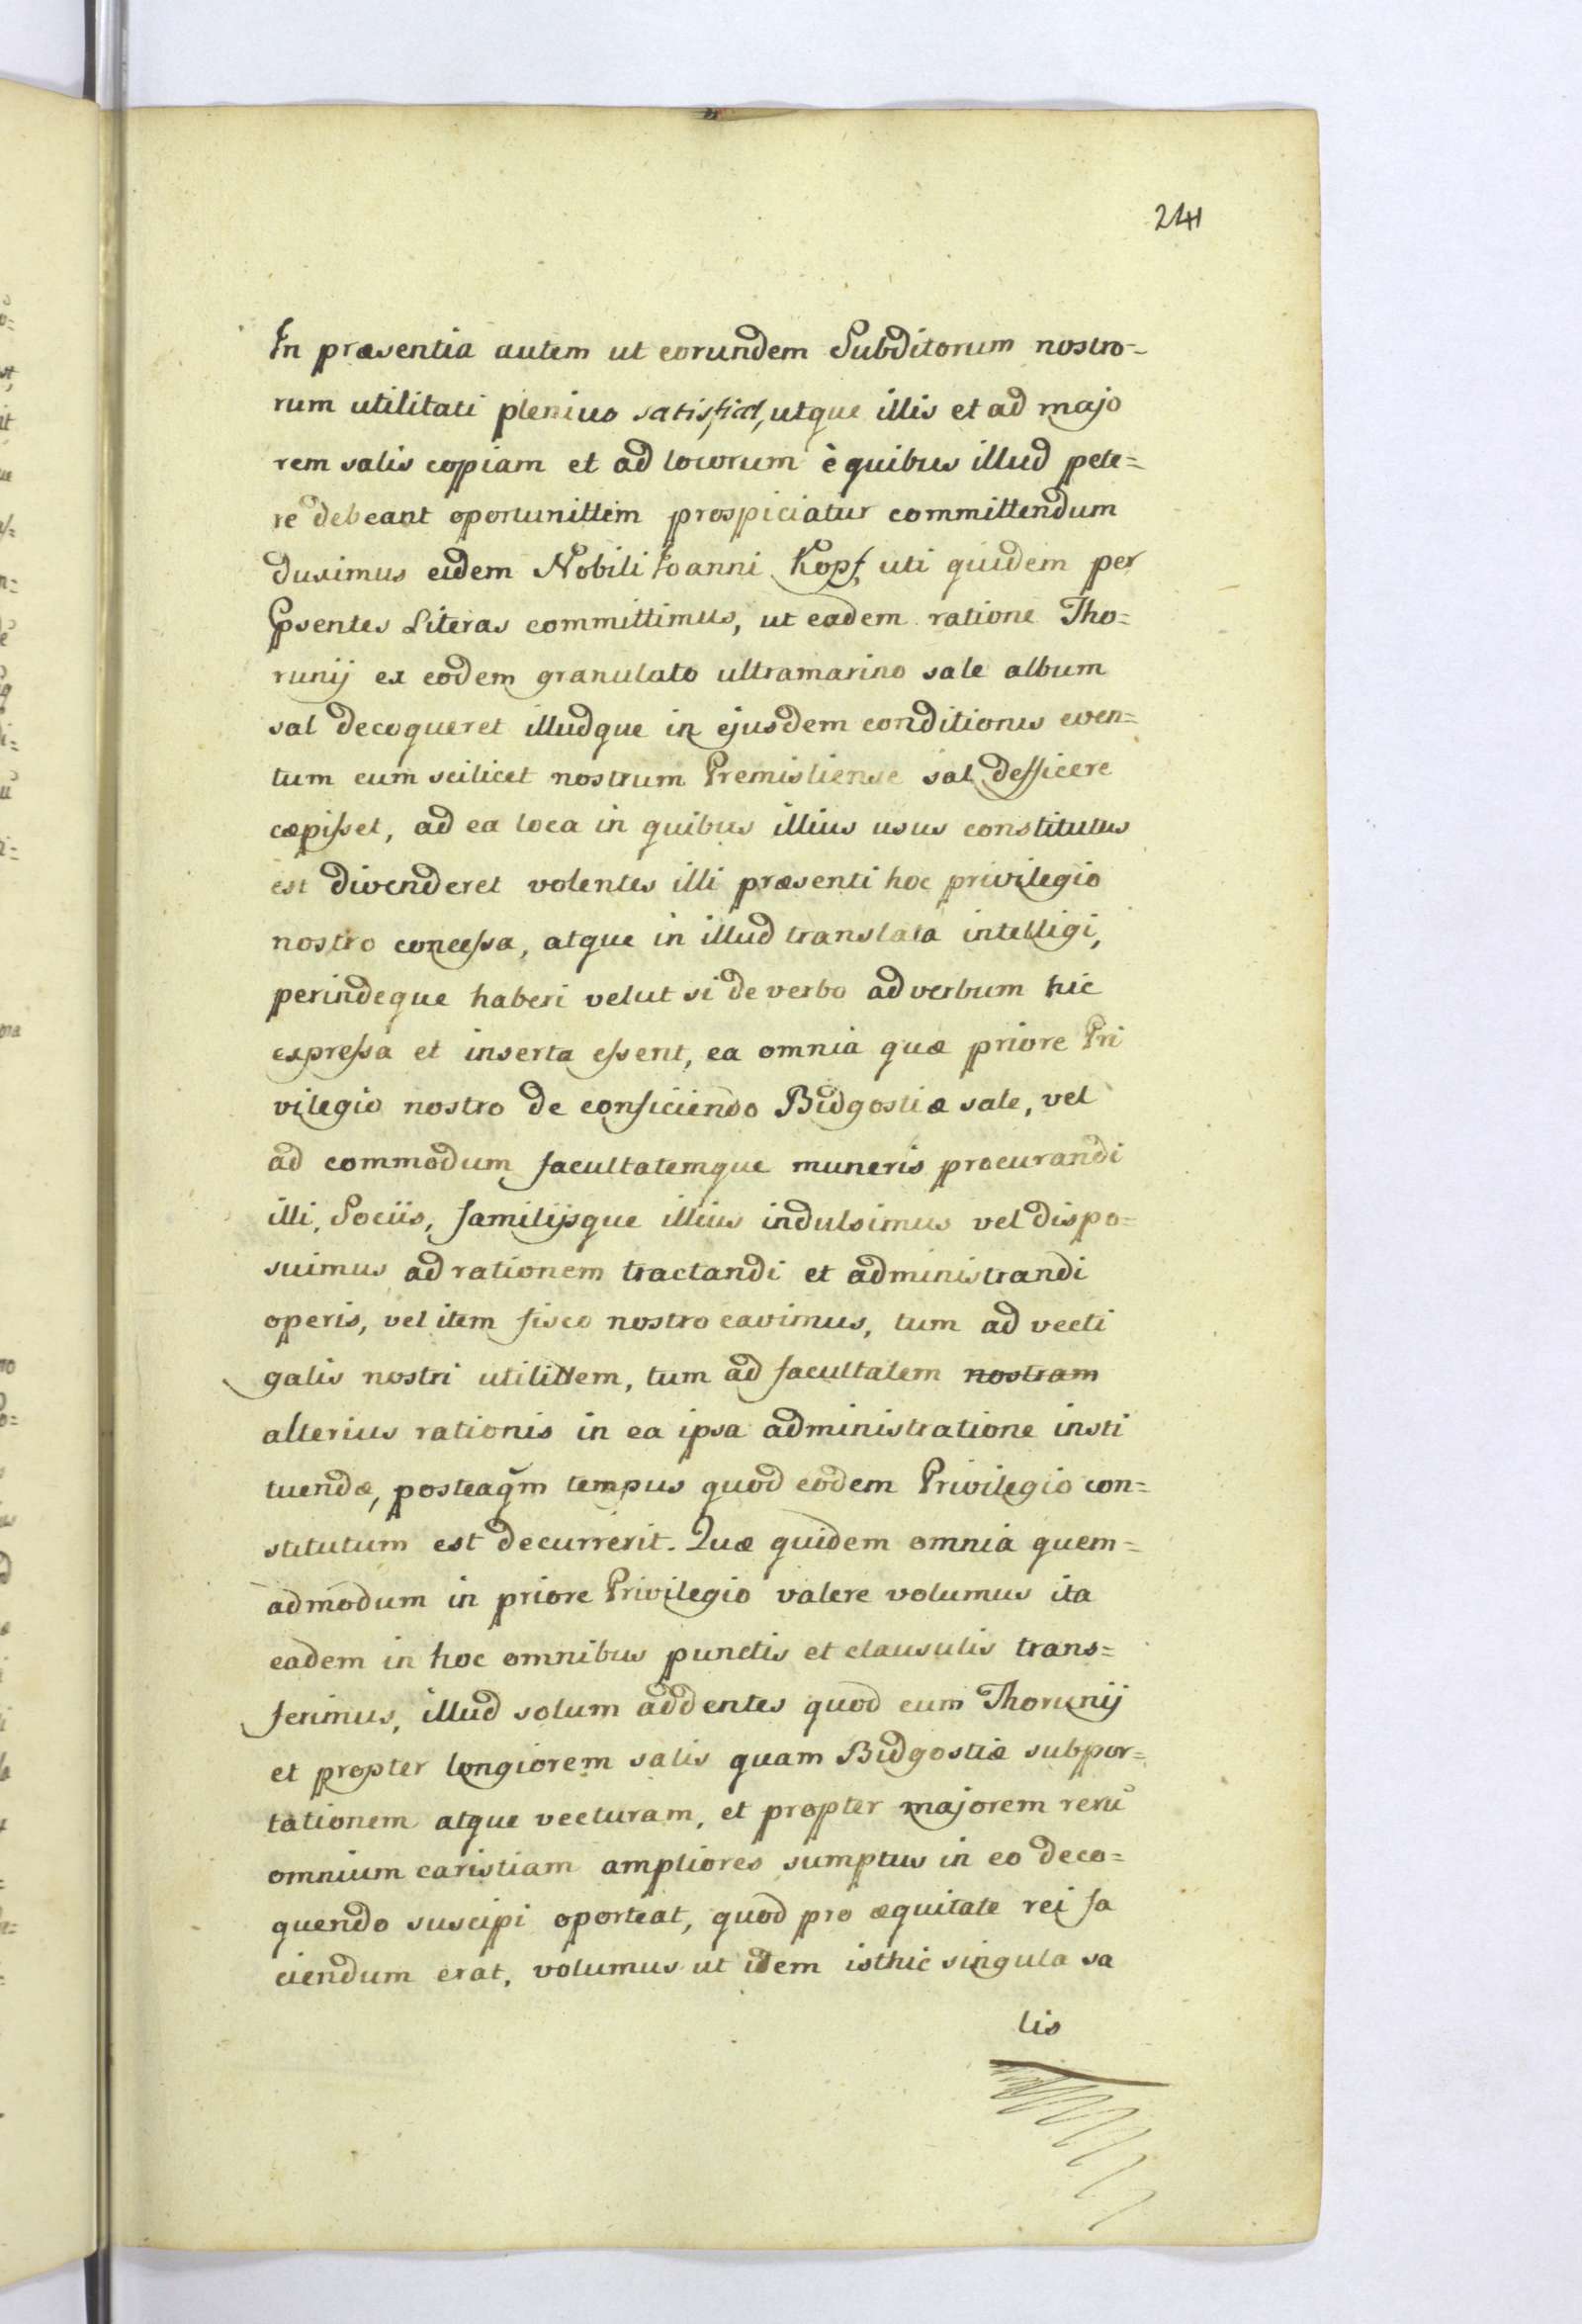 241
In præsentia autem ut eorundem Subditorum nostro-
rum utilitati plenius satisfiat, utque illis et ad majo
rem salis copiam et ad locorum è quibus illud pete=
re debeant oportunittem prospiciatur committendum
duximus eidem Nobili Ioanni Kopf, uti quidem per
psentes Literas committimus, ut eadem ratione Tho=
runij ex eodem granulato ultramarino sale album
sal decoqueret illudque in ejusdem conditionis even=
tum cum scilicet nostrum Premisliense sal defficere
cæpisset, ad ea loca in quibus illius usus constitutus
est divenderet volentes illi præsenti hoc privilegio
nostro concessa, atque in illud translata intelligi,
perindeque haberi velut si de verbo ad verbum hic
expressa et inserta essent, ea omnia quæ priore Pri
vilegio nostro de conficiendo Bidgostiæ sale, vel
ad commodum facultatemque muneris procurandi
illi, Sociis, familijsque illius indulsimus vel dispo=
suimus ad rationem tractandi et administrandi
operis, vel item fisco nostro cavimus, tum ad vecti
galis nostri utilittem, tum ad facultatem nostram
alterius rationis in ea ipsa administratione insti
tuendæ, posteaqm̃ tempus quod eodem Privilegio con=
stitutum est decurrerit. Quæ quidem omnia quem=
admodum in priore Privilegio valere volumus ita
eadem in hoc omnibus punctis et clausulis trans=
ferimus, illud solum addentes quod cum Thorunij
et propter longiorem salis quam Bidgostiæ subpor=
tationem atque vecturam, et propter majorem rerũ
omnium caristiam ampliores sumptus in eo deco=
quendo suscipi oporteat, quod pro æquitate rei fa
ciendum erat, volumus ut idem isthic singula sa
lis